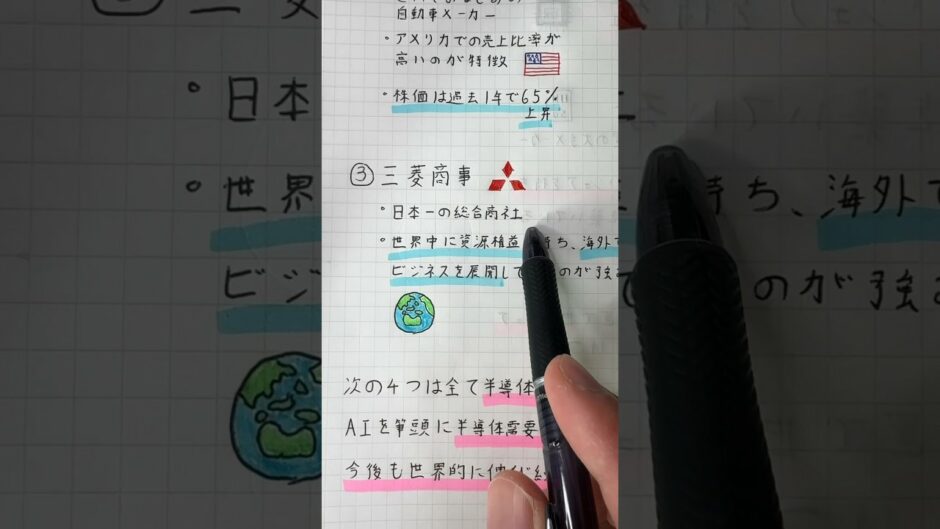 自動車メーカー
・アメリカでの売上比率が
高いのが特徴
・株価は過去1年で65%
上昇
③三菱商事
・日本一の総合商社
・世界中に資源権益 持ち、海外で
ビジネスを展開して のが強
次の4つは全て半導体
AIを筆頭に半導体需要
今後も世界的に伸び